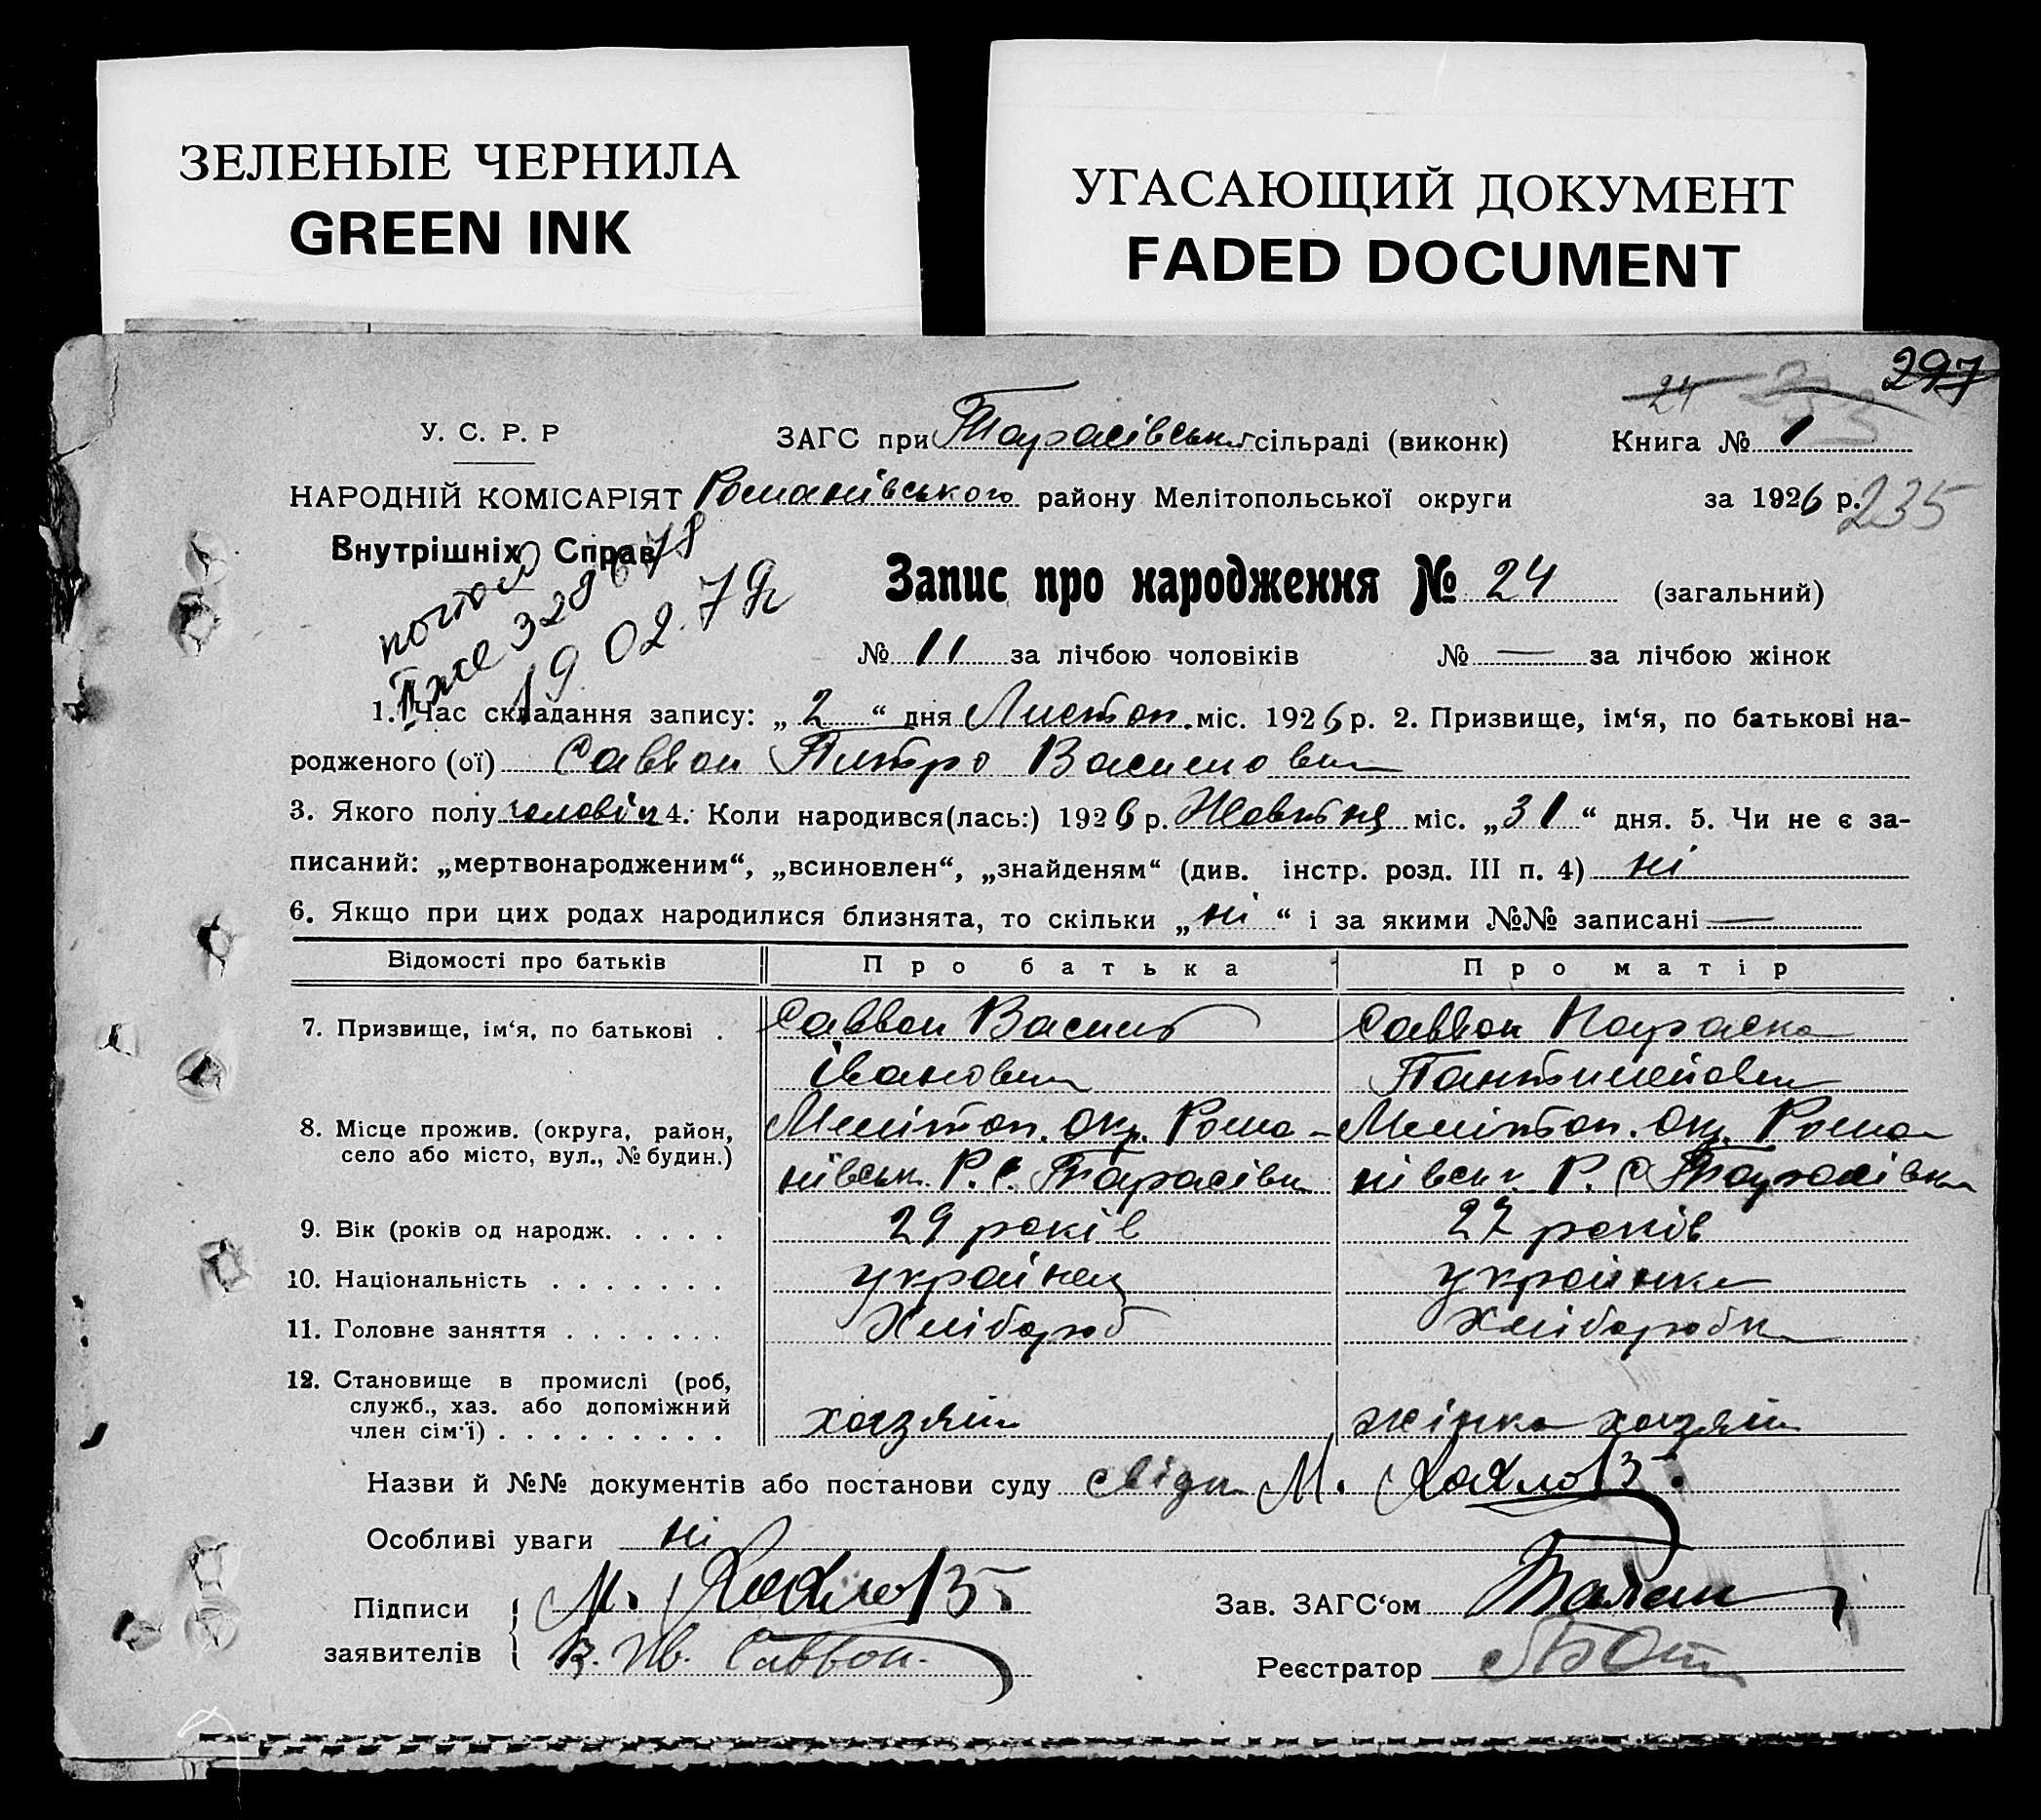 ЗЕЛЕНЫЕ ЧЕРНИЛА
GREEN INK
УГАСАЮЩИЙ ДОКУМЕНТ
FADED DOCUMENT
297
24
У. С. Р. Р
ЗАГС при Тарасівськ. сільраді (виконк) Книга № 1
НАРОДНІЙ КОМІСАРІЯТ Романівського району Мелітопольської округи за 1926 р. 235
Внутрішніх Справ
19 02. 79г
Запис про народження № 24 (загальний)
№ 11 за лічбою чоловіків № — за лічбою жінок
1. Час складання запису: „ 2 “ дня Листоп. міс. 1926 р. 2. Призвище, ім‘я, по батькові на-
родженого (ої) Саввон Питро Васильович
3. Якого полу чоловіч 4. Коли народився(лась:) 1926 р. Жовтня міс. „31“ дня. 5. Чи не є за-
писаний: „мертвонародженим“, „всиновлен“, „знайденям“ (див. інстр. розд. III п. 4) ні
6. Якщо при цих родах народилися близнята, то скільки „ні“ і за якими №№ записані —
Відомості про батьків Про батька Про матір
7. Призвище, ім‘я, по батькові . Саввон Василь Саввон Параска
Іванович
8. Місце прожив. (округа, район, Мелітоп. Окр. Рома- Мелітоп. Окр. Рома-
село або місто, вул., № будин.) нівськ. Р. С. Тарасівка нівськ. Р. С Тарасівка
9. Вік (років од народж. . . . . 29 років 27 років
10. Національність . . . . . . . українец українка
11. Головне заняття . . . . . . . Хлібороб Хліборобка
12. Становище в промислі (роб,
служб., хаз. або допоміжний
член сім‘ї) . . . . . . . . . хазяїн жінка хазяїн
Назви й №№ документів або постанови суду свідк М. Хохлов
Особливі уваги ні
Підписи М. Хохлов Зав. ЗАГС‘ом
заявителів В. Ив. Саввон. Реєстратор